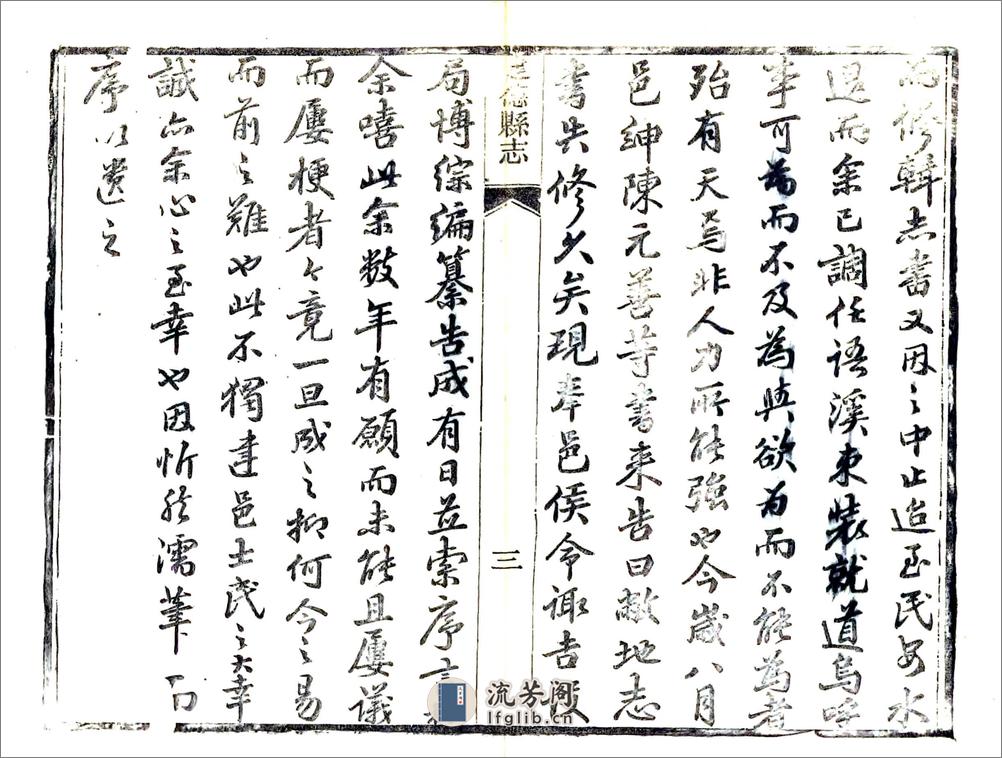 而修輯志書又因之中止迨至民安水
退而余已調任語溪束裝就道烏呼
事可為而不及為與欲為而不能為者
殆有天焉非人力所能強也今歲八月
邑紳陳元善等書來告曰敝地志
書失修久矣現奉邑侯令諏吉設
德縣志
三
局博綜編纂告成有日並索序言
余嘻此余数年有願而未能且屢議
而屢梗者々竟一旦成之抑何今之易
而前之難也此不獨建邑士民之大幸
誠亦余心之至幸也因忻然濡筆而
序以遺之
流芳阁
lfglib.cn